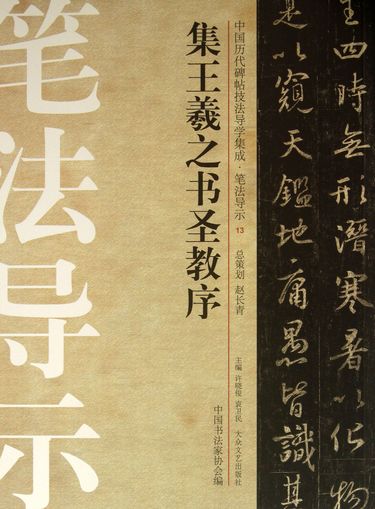 笔法导示
集王羲之书圣教序
中国历代碑帖技法导学集成·笔法导示 13
总策划 赵长青
主编 许晓俊 袁卫民 大众文艺出版社
中国书法家协会编
王四時無形潛寒暑以化物
是以窺天鑑地庸愚皆識其